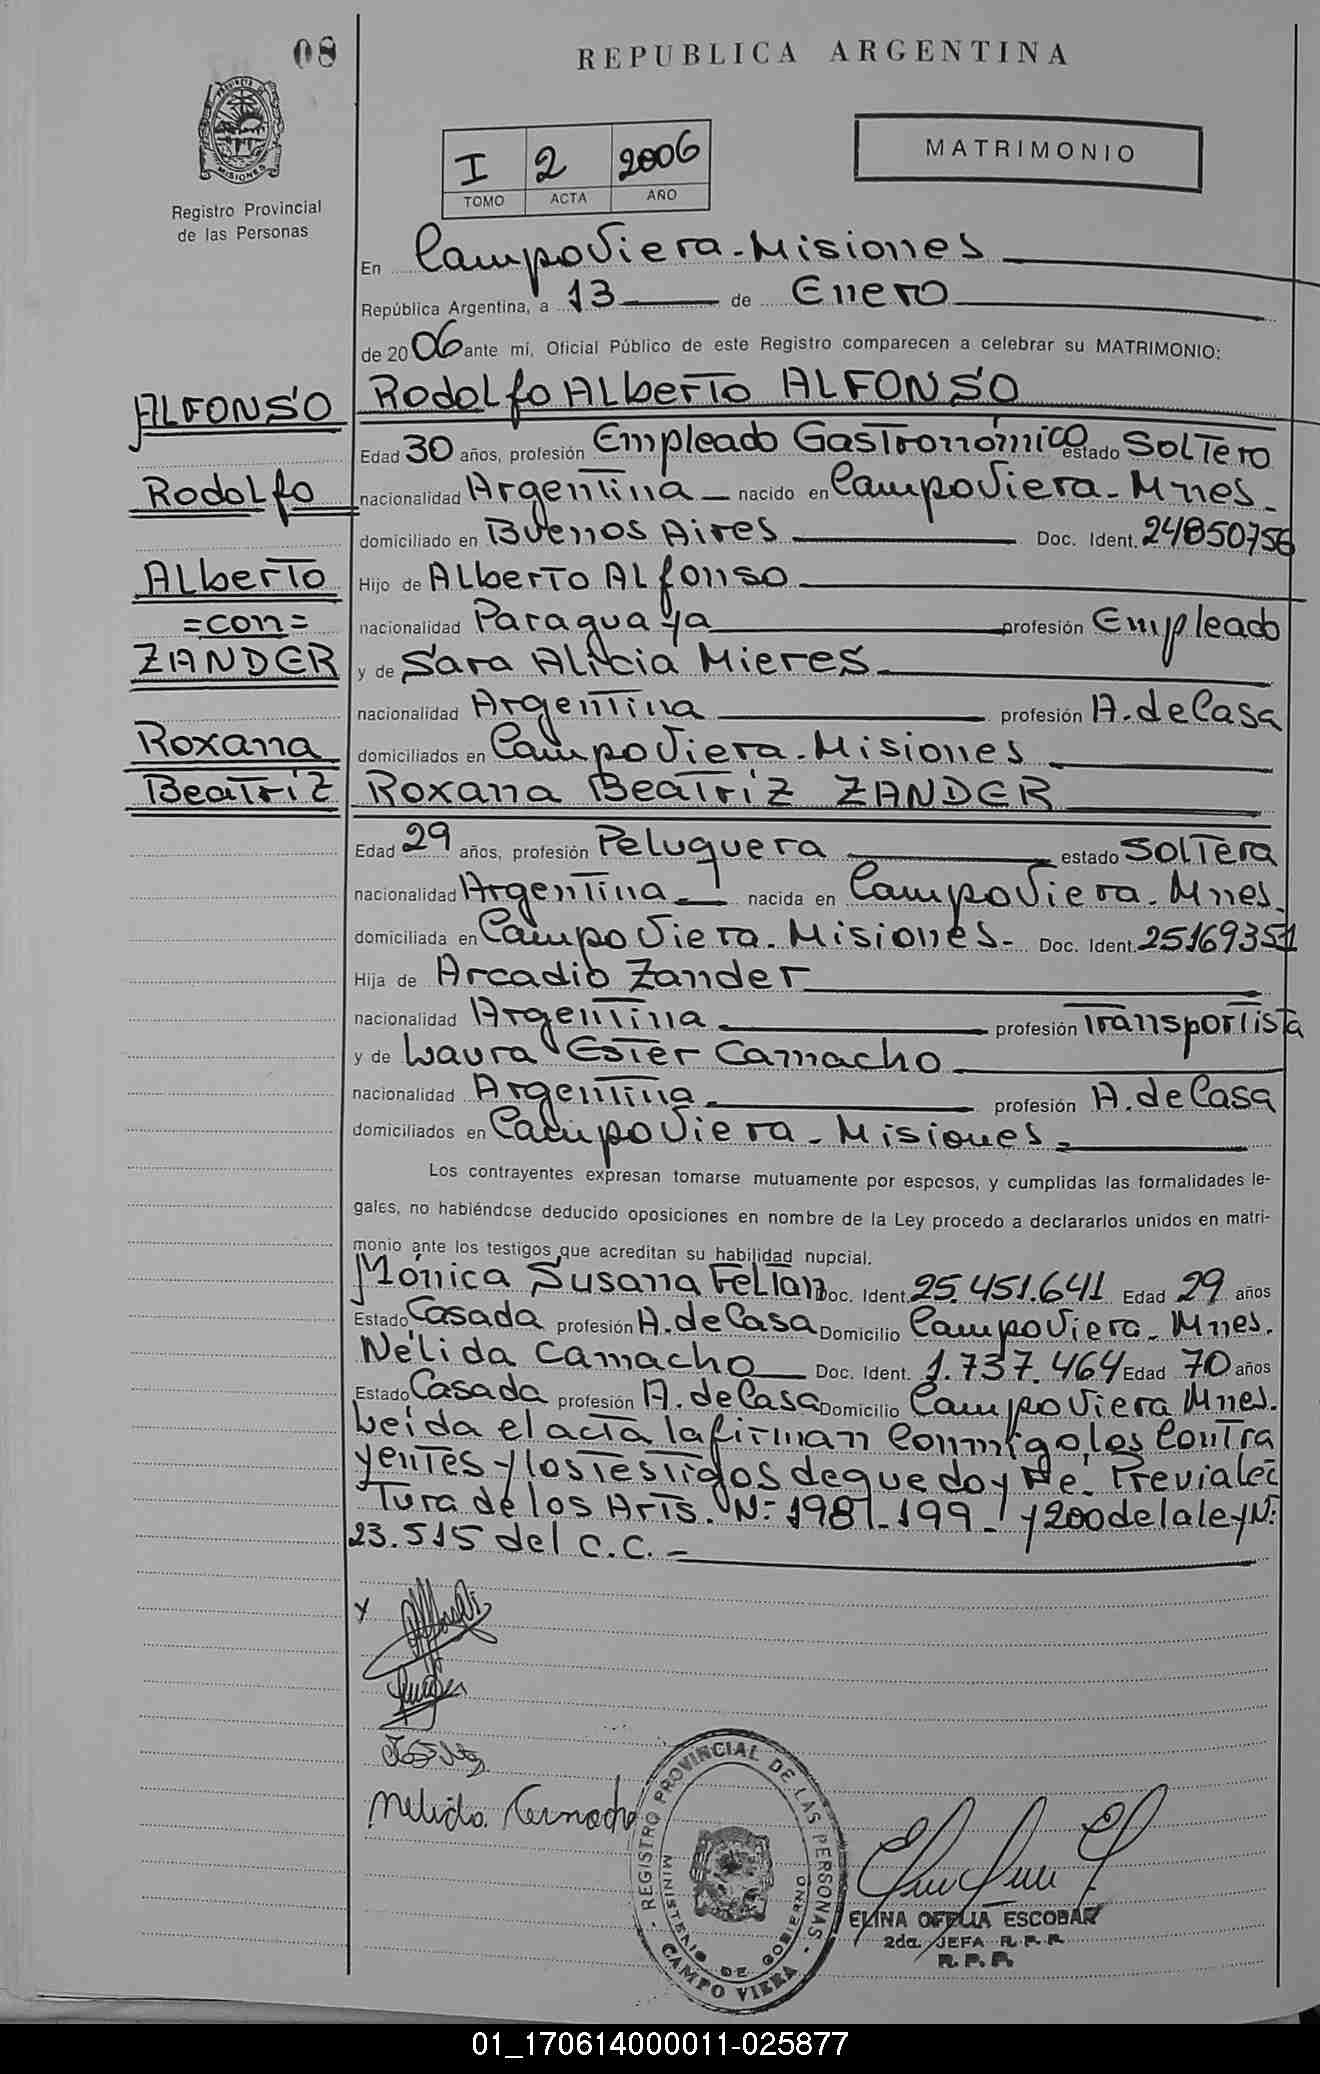 08
REPUBLICA ARGENTINA
PROVINCIA DE
MISIONES
Registro Provincial
de las Personas
I 2 2006
TOMO ACTA AÑO
MATRIMONIO
En CampoViera-Misiones
República Argentina, a 13 de Enero
de 2006 ante mi, Oficial Público de este Registro comparecen a celebrar su MATRIMONIO:
ALFONSO Rodolfo Alberto ALFONSO
Edad 30 años, profesión Empleado Gastronómico estado Soltero
Rodolfo nacionalidad Argentina nacido en CampoViera-Mnes.
domiciliado en Buenos Aires Doc. Ident. 24850756
Alberto Hijo de Alberto Alfonso
=con= nacionalidad Paraguaya profesión Empleado
ZANDER y de Sara Alicia Mieres
nacionalidad Argentina profesión A.de Casa
Roxana domiciliados en CampoViera-Misiones
Beatriz Roxana Beatriz ZANDER
Edad 29 años, profesión Peluquera estado Soltera
nacionalidad Argentina nacida en CampoViera-Mnes.
domiciliada en CampoViera-Misiones- Doc. Ident. 25169351
Hija de Arcadio Zander
nacionalidad Argentina profesión Transportista
y de Laura Ester Camacho
nacionalidad Argentina. profesión A.de Casa
domiciliados en CampoViera-Misiones.
Los contrayentes expresan tomarse mutuamente por esposos, y cumplidas las formalidades le-
gales, no habiéndose deducido oposiciones en nombre de la Ley procedo a declararlos unidos en matri-
monio ante los testigos que acreditan su habilidad nupcial.
Mónica Susana Feltan Doc. Ident. 25.451.641 Edad 29 años
Estado Casada profesión A.de Casa Domicilio CampoViera-Mnes.
Nélida Camacho Doc. Ident. 1.737.464 Edad 70 años
Estado Casada profesión A.de Casa Domicilio CampoViera Mnes.
Leída el acta la firman conmigo, los Contra
yentes y los testigos de que doy Fé. Previa lec
tura de los Arts. N:198-199-y 200 de la ley N:
23.515 del C.C.-
Nelida Camacho
REGISTRO PROVINCIAL DE LAS PERSONAS
MINISTERIO DE GOBIERNO
CAMPO VIERA
ELINA OFELIA ESCOBAR
2da. JEFA R.P.P.
R.P.P.
01_170614000011-025877